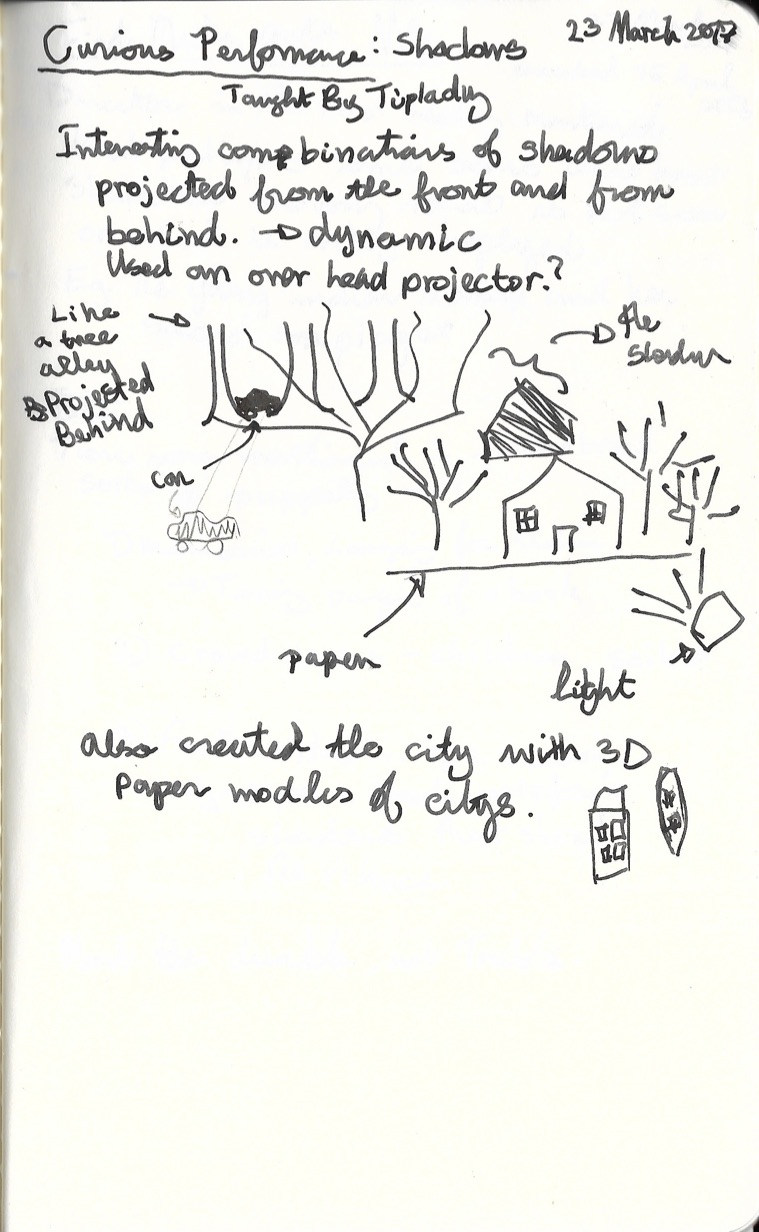 23 March 2017
Curious Performance: Shadows
Taught By Tiplady
Interesting combinations of shadows
projected from the front and from
behind. → dynamic
Used an over head projector.?
Like
a tree
alley
Projected
Behind
the
Shadow
car
paper
light
also created the city with 3D
Paper modles of citys.